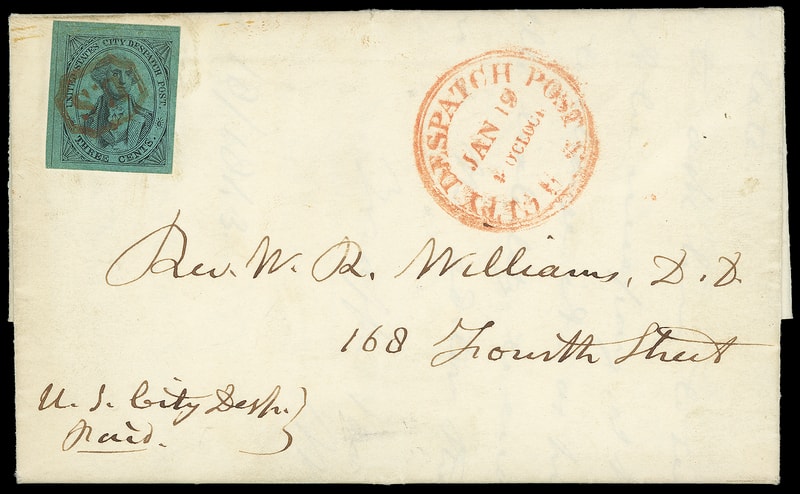 UNITED STATES CITY DESPATCH POST.
THREE CENTS.
U.S
CITY DESPATCH POST U S
JAN 19
4 O'CLOCK
Rev. W. R. Williams, D. D.
168 Fourth Street
U. S. City Desp.
Paid.